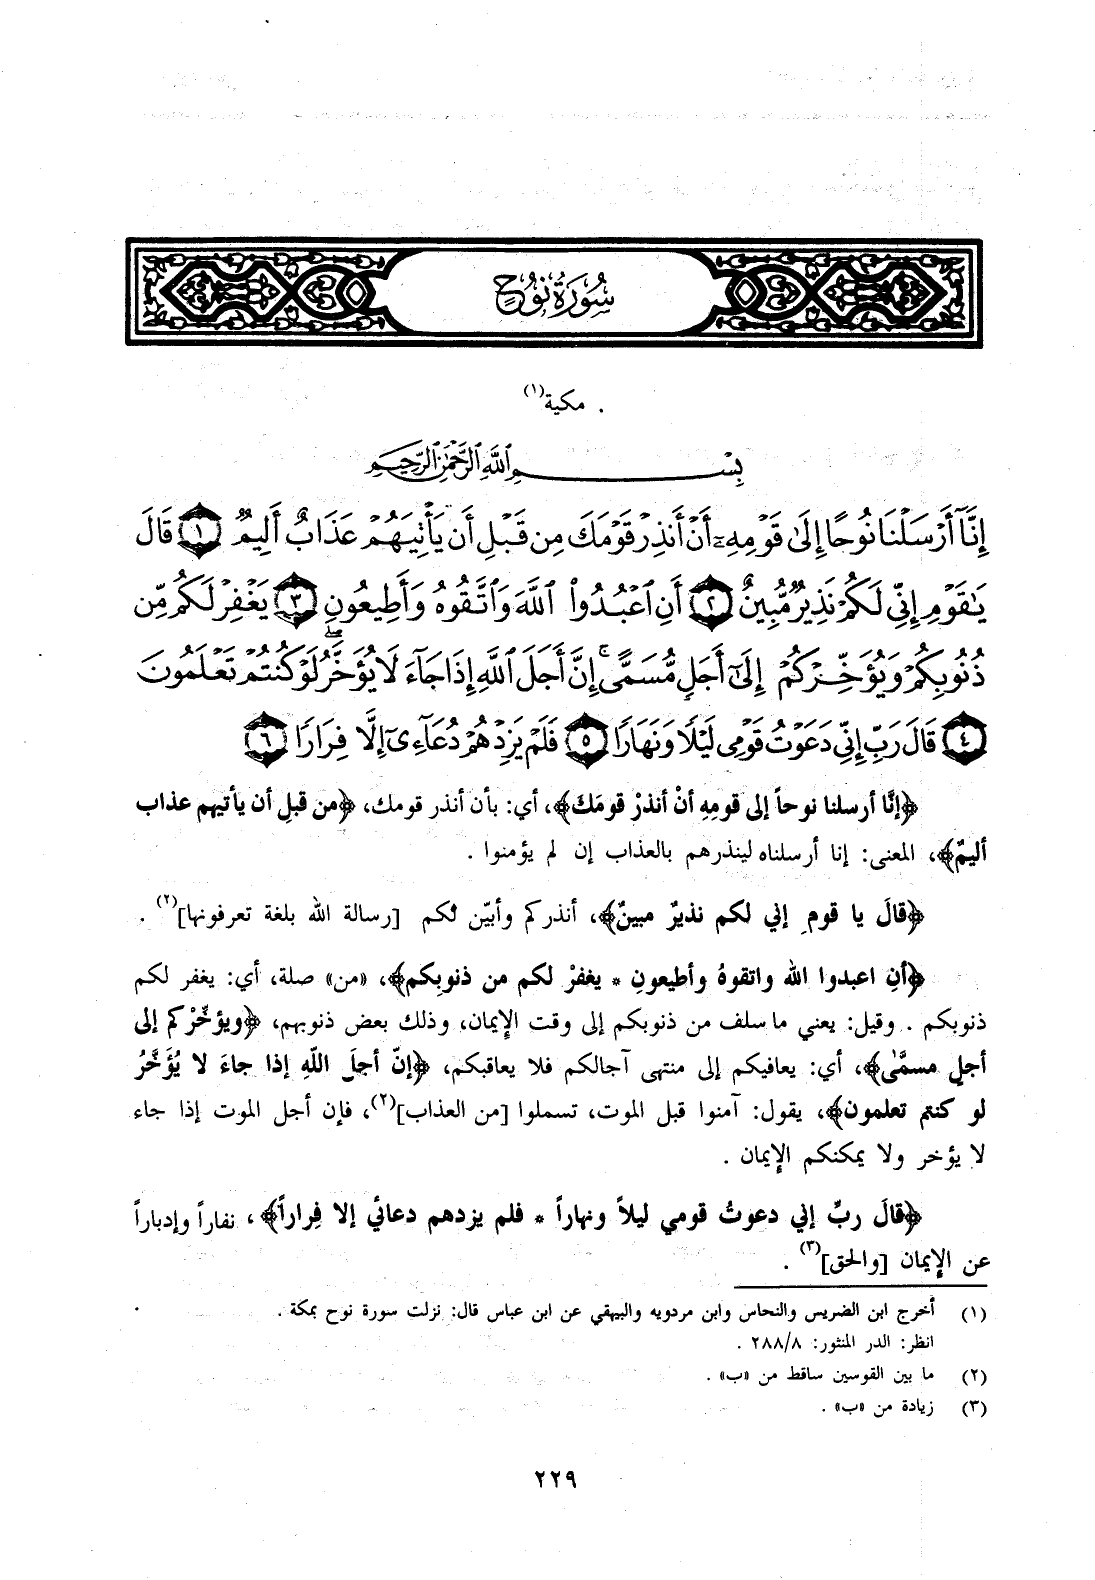 سُورَةُ نُوحٍ
مكية(١) .
بِسْمِ ٱللَّهِ ٱلرَّحْمَٰنِ ٱلرَّحِيمِ
إِنَّآ أَرْسَلْنَا نُوحًا إِلَىٰ قَوْمِهِۦٓ أَنْ أَنذِرْ قَوْمَكَ مِن قَبْلِ أَن يَأْتِيَهُمْ عَذَابٌ أَلِيمٌ ١ قَالَ
يَٰقَوْمِ إِنِّى لَكُمْ نَذِيرٌ مُّبِينٌ ٢ أَنِ ٱعْبُدُوا۟ ٱللَّهَ وَٱتَّقُوهُ وَأَطِيعُونِ ٣ يَغْفِرْ لَكُم مِّن
ذُنُوبِكُمْ وَيُؤَخِّرْكُمْ إِلَىٰٓ أَجَلٍ مُّسَمًّى ۚ إِنَّ أَجَلَ ٱللَّهِ إِذَا جَآءَ لَا يُؤَخَّرُ ۖ لَوْ كُنتُمْ تَعْلَمُونَ
٤ قَالَ رَبِّ إِنِّى دَعَوْتُ قَوْمِى لَيْلًا وَنَهَارًا ٥ فَلَمْ يَزِدْهُمْ دُعَآءِىٓ إِلَّا فِرَارًا ٦
﴿إنَّا أرسلنا نوحاً إلى قومِهِ أنْ أنذرْ قومَكَ﴾، أي: بأن أنذر قومك، ﴿من قبلِ أن يأتيهم عذاب
أليمٌ﴾، المعنى: إنا أرسلناه لينذرهم بالعذاب إن لم يؤمنوا .
﴿قالَ يا قومِ إني لكم نذيرٌ مبينٌ﴾، أنذركم وأبيّن لكم [رسالة الله بلغة تعرفونها](٢) .
﴿أنِ اعبدوا الله واتقوهُ وأطيعونِ * يغفرْ لكم من ذنوبِكم﴾، «من» صلة، أي: يغفر لكم
ذنوبكم . وقيل: يعني ما سلف من ذنوبكم إلى وقت الإيمان، وذلك بعض ذنوبهم، ﴿ويؤخِّرْكم إلى
أجلٍ مسمَّى﴾، أي: يعافيكم إلى منتهى آجالكم فلا يعاقبكم، ﴿إنّ أجلَ اللّهِ إذا جاءَ لا يُؤَخَّرُ
لو كنتم تعلمون﴾، يقول: آمنوا قبل الموت، تسملوا [من العذاب](٢)، فإن أجل الموت إذا جاء
لا يؤخر ولا يمكنكم الإيمان .
﴿قالَ ربِّ إني دعوتُ قومي ليلاً ونهاراً * فلم يزدهم دعائي إلا فِراراً﴾، نفاراً وإدباراً
عن الإيمان [والحق](٣) .
(١) أخرج ابن الضريس والنحاس وابن مردويه والبيهقي عن ابن عباس قال: نزلت سورة نوح بمكة .
انظر: الدر المنثور: ٢٨٨/٨ .
(٢) ما بين القوسين ساقط من «ب» .
(٣) زيادة من «ب» .
٢٢٩